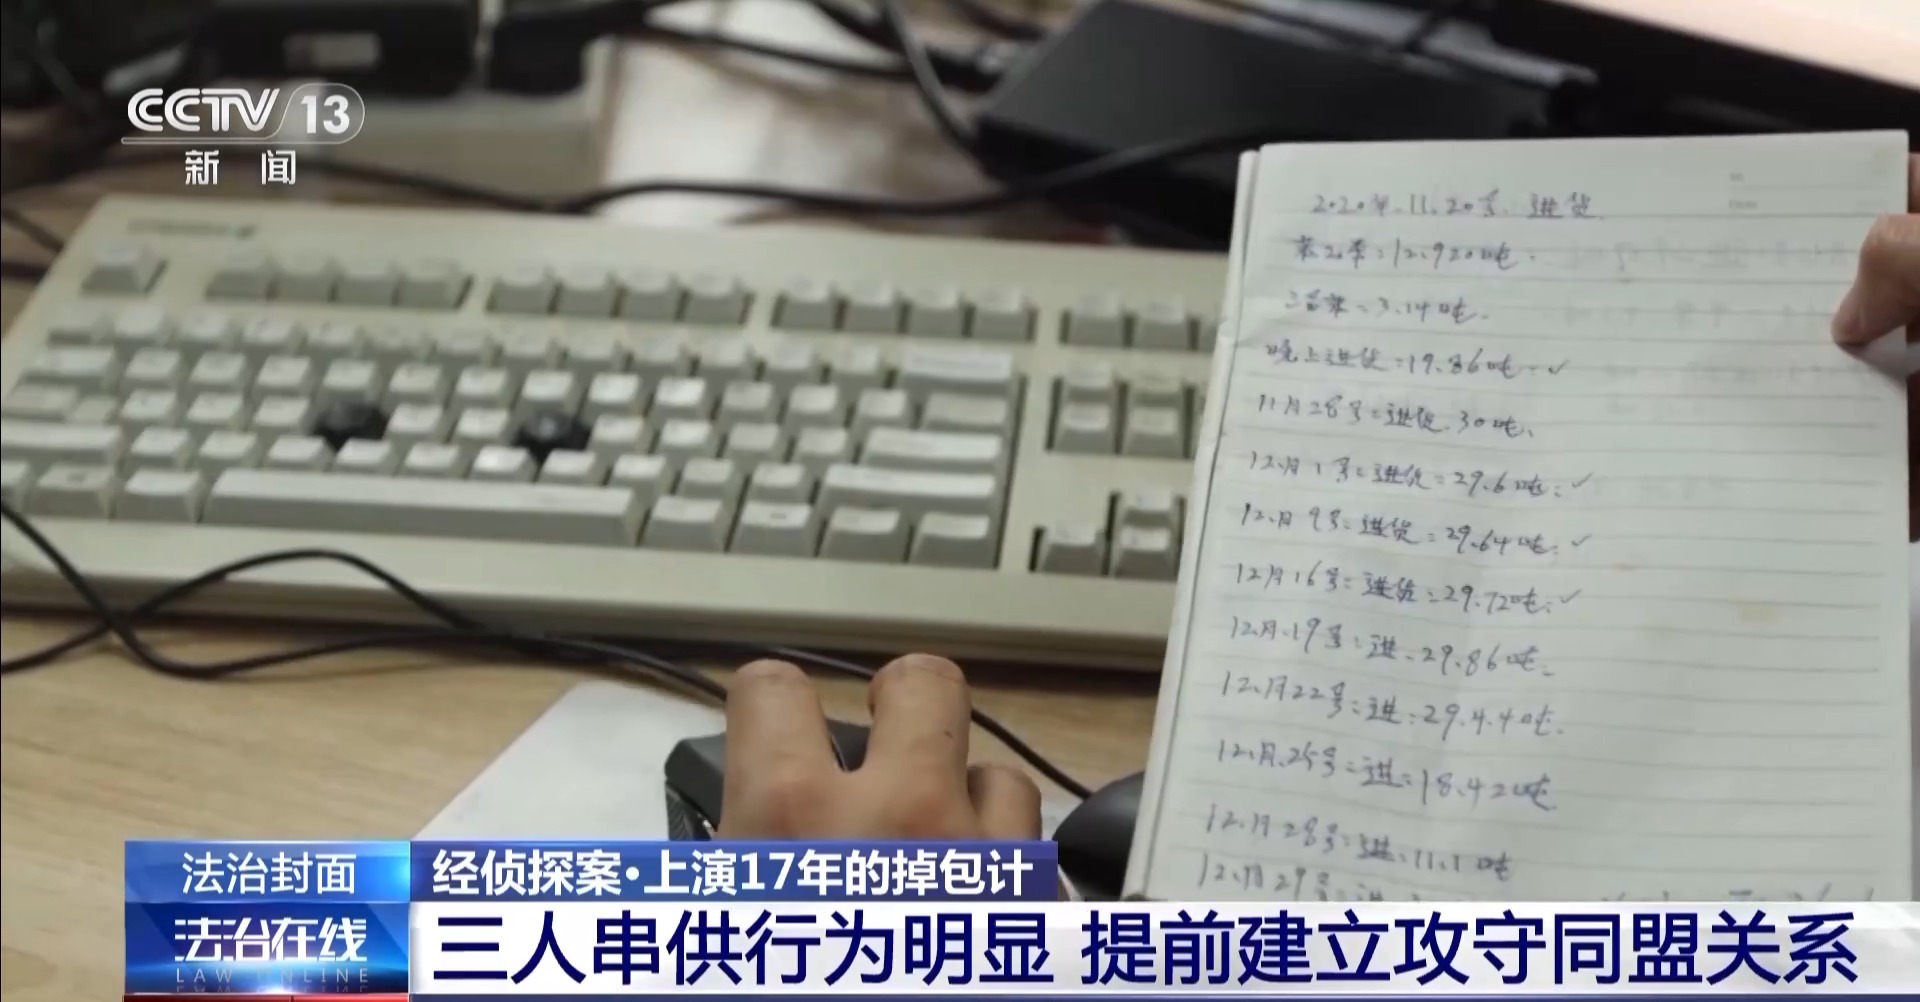 CCTV 13
新闻
2020年.11.20号.进货
=12.920吨.
=3.14吨.
晚上进货=19.86吨.✓
11月28号=进货.30吨.
12月1号=进货=29.6吨.✓
12月9号=进货=29.64吨.✓
12月16号=进货=29.72吨.✓
12月.19号=进.29.86吨.
12月22号=进=29.4.4吨.
12.月.25号=进=18.42吨
12月28号=进.11.1吨
12.月29号=进
法治封面
经侦探案·上演17年的掉包计
法治在线
LAW ONLINE
三人串供行为明显 提前建立攻守同盟关系